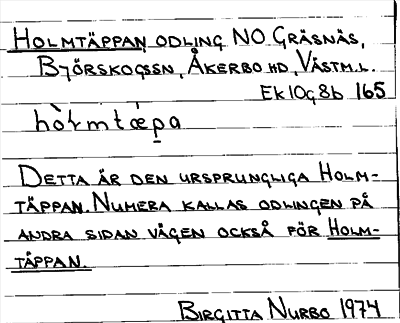 HOLMTÄPPAN, ODLING NO GRÄSNÄS,
BJÖRSKOGSSN, ÅKERBO HD, VÄSTM.L.
EK 10G8b 165
hòlmtæpa
DETTA ÄR DEN URSPRUNGLIGA HOLM-
TÄPPAN. NUMERA KALLAS ODLINGEN PÅ
ANDRA SIDAN VÄGEN OCKSÅ FÖR HOLM-
TÄPPAN.
BIRGITTA NURBO 1974